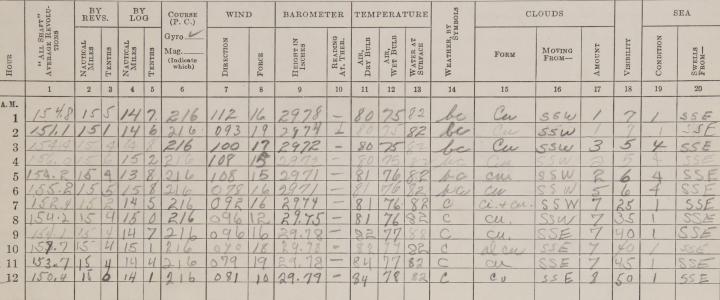 HOUR "ALL SHAFT" AVERAGE REVOLUTIONS BY REVS. BY LOG COURSE (P. C.) WIND BAROMETER TEMPERATURE WEATHER, BY SYMBOLS CLOUDS VISIBILITY SEA
NAUTICAL MILES TENTHS NAUTICAL MILES TENTHS Gyro ✓ Mag. (Indicate which) DIRECTION FORCE HEIGHT IN INCHES READING AT. THER. AIR, DRY BULB AIR, WET BULB WATER AT SURFACE FORM MOVING FROM— AMOUNT CONDITION SWELLS FROM—
1 2 3 4 5 6 7 8 9 10 11 12 13 14 15 16 17 18 19 20
A.M.
1 154.8 15 5 14 7 216 112 16 2978 - 80 75 82 bc Cu SSW 1 7 1 SSE
2 151.1 15 1 14 6 216 093 19 2974 80 75 82 bc Cu SSW 1 7 1 SSE
3 15 4 14 8 216 100 17 2972 - 80 75 bc Cu SSW 3 5 4 SSE
4 15 2 216 108 15 80 75 82 bc Cu SSW 5 4 SSE
5 154.2 15 4 13 8 216 108 15 2971 - 81 76 82 bc cu SSW 2 6 4 SSE
6 155.2 15 5 15 8 216 078 16 2971 - 81 76 82 bc cu SSW 5 6 4 SSE
7 15 2 14 5 216 092 16 2974 - 81 76 82 c ci.+cu. SSW 7 25 1 SSE
8 154.2 15 4 15 0 216 096 12 29.75 - 81 76 82 c cu. SSW 7 35 1 SSE
9 15 4 14 7 216 096 16 29.78 - 82 77 82 c cu. SSE 7 40 1 SSE
10 15 4 15 1 216 070 18 29.78 - 82 c cu SSE 7 40 1 SSE
11 153.7 15 4 14 4 216 079 19 29.78 - 84 77 82 c cu SSE 7 45 1 SSE
12 150.4 15 0 14 1 216 081 10 29.79 - 84 78 82 c cu SSE 8 50 1 SSE